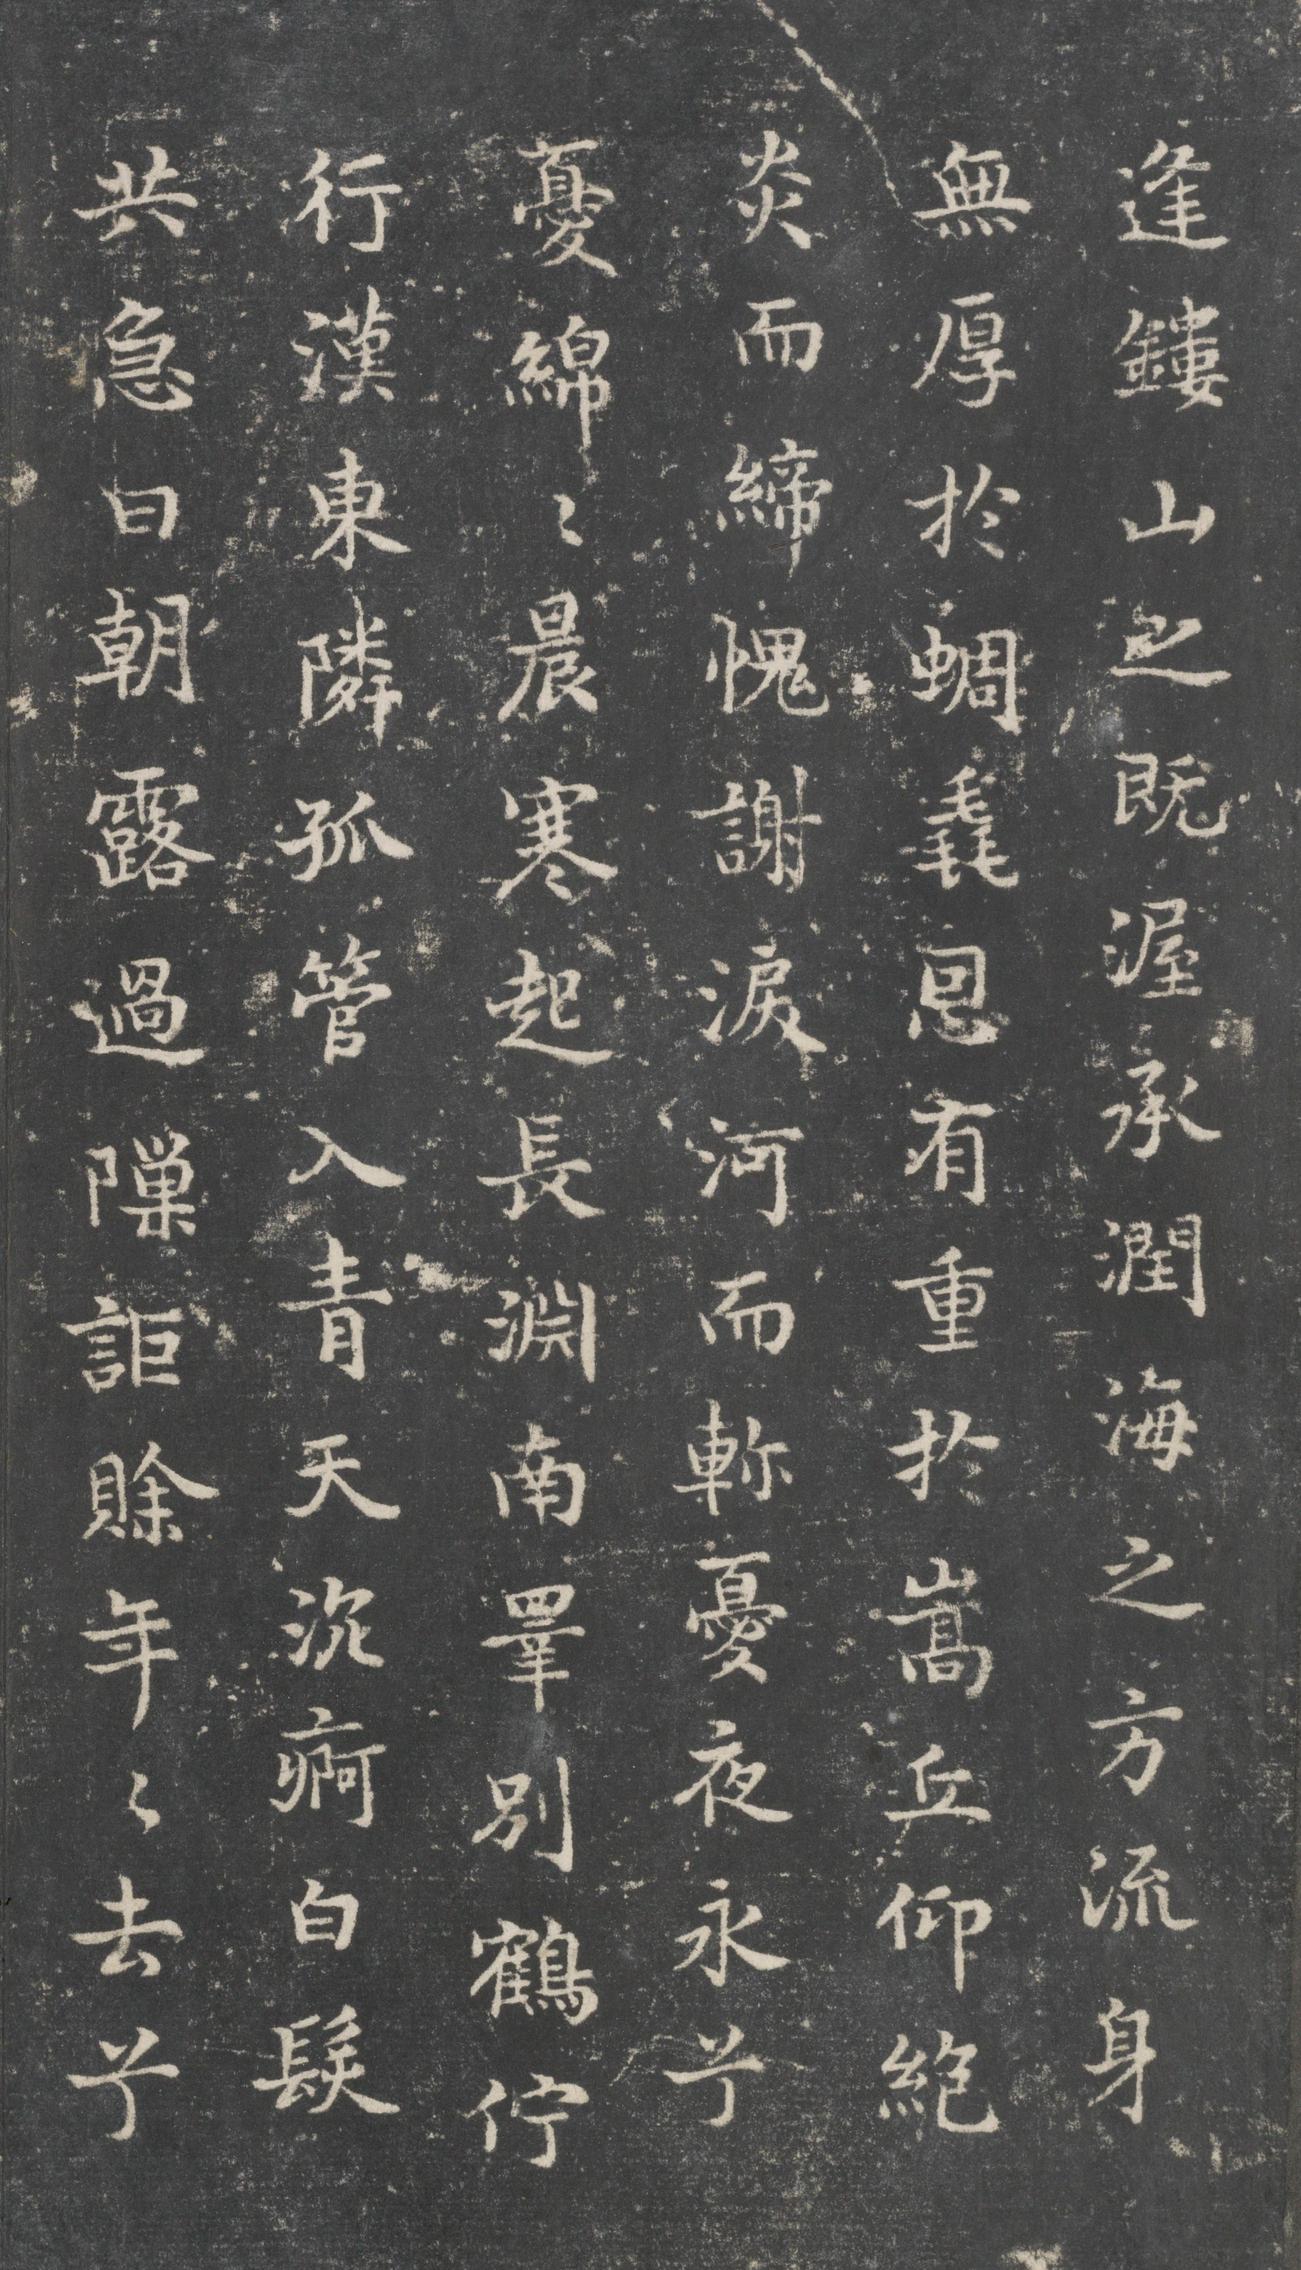 逢鏤山之既渥承潤海之方流身
無厚於蜩毳恩有重於嵩丘仰絶
炎而締愧謝淚河而軫憂夜永兮
憂綿〻晨寒起長淵南睪別鶴佇
行漢東隣孤管入青天沉痾白髮
共急日朝露過隟詎賒年〻去兮